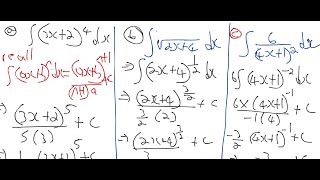 a) ∫(3x+2)^4 dx
recall
∫(ax+b)^n dx = (ax+b)^(n+1) / (n+1)a + C
→ (3x+2)^5 / 5(3) + C
b) ∫√2x+4 dx
→ ∫(2x+4)^(1/2) dx
→ (2x+4)^(3/2) / (3/2)(2) + C
→ (2x+4)^(3/2) / 3 + C
c) ∫ 6/(4x+1)^2 dx
6∫(4x+1)^-2 dx
6 × (4x+1)^-1 / -1(4) + C
-3/2 (4x+1)^-1 + C